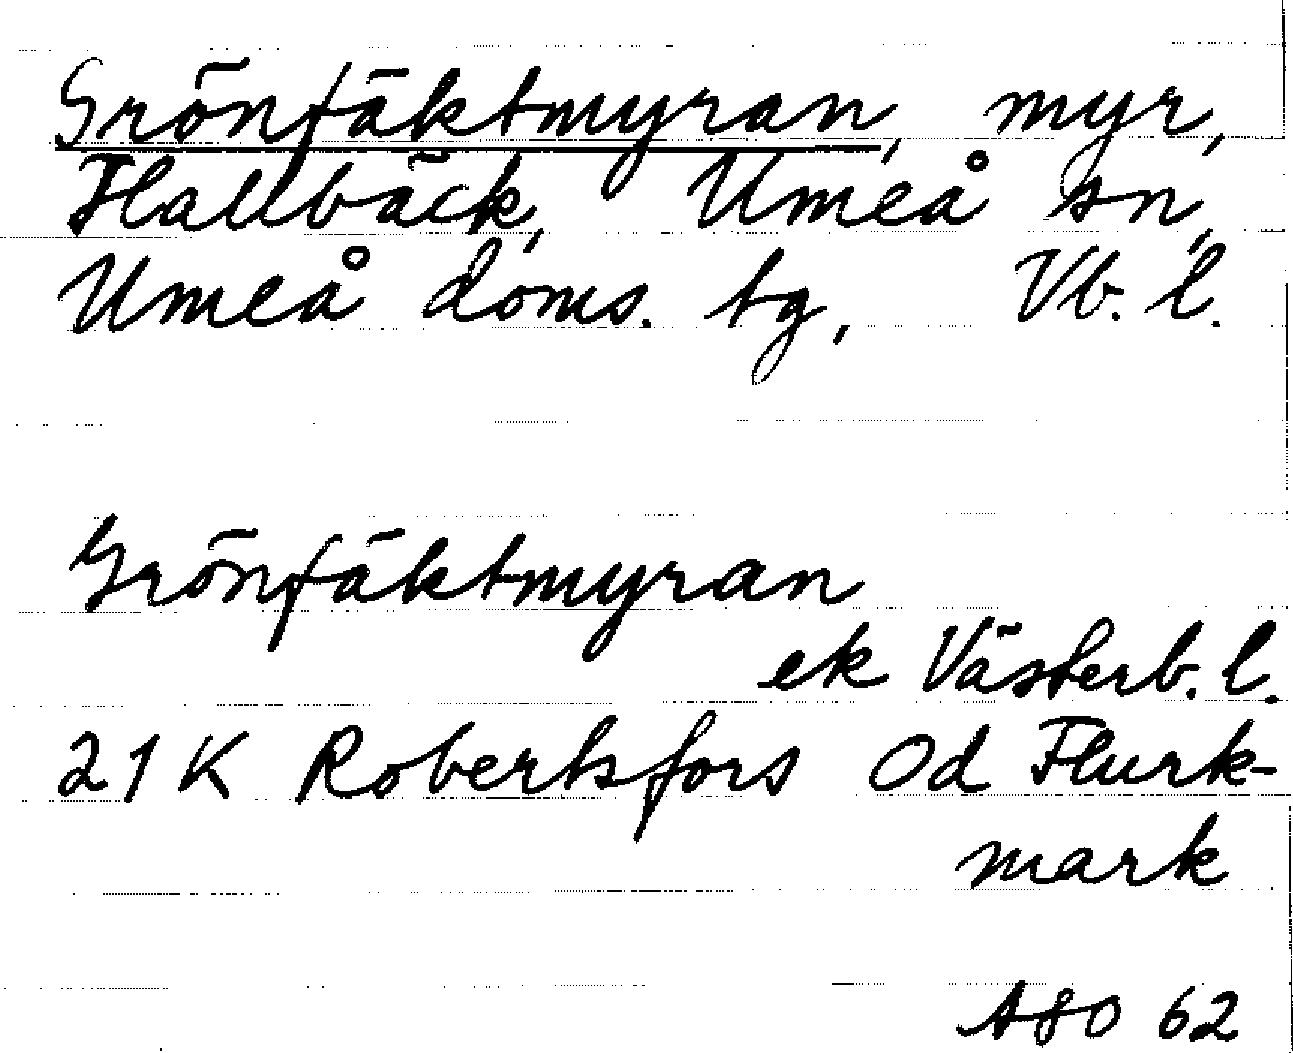 Grönfäktmyran, myr,
Hallbäck, Umeå sn,
Umeå doms. tg, Vb. l.
Grönfäktmyran
ek Västerb. l.
21 K Robertsfors Od Flurk-
mark
ASO 62